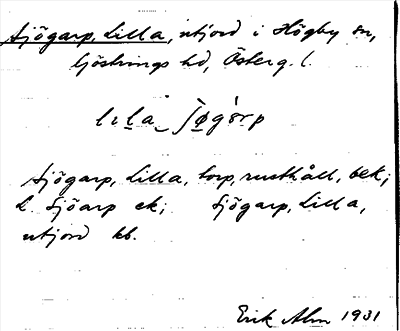 Sjögarp, Lilla, utjord i Högby sn,
Göstrings hd, Österg. l.
lɪla ʃø̀gár̥p
Sjögarp, Lilla, torp, rusthåll, bek;
L. Sjöarp ek; Sjögarp, Lilla,
utjord kb.
Erik Alm 1931